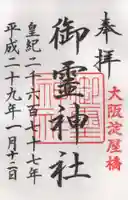 奉拝
大阪淀屋橋
御霊神社
皇紀二千六百七十七年
平成二十九年一月十二日